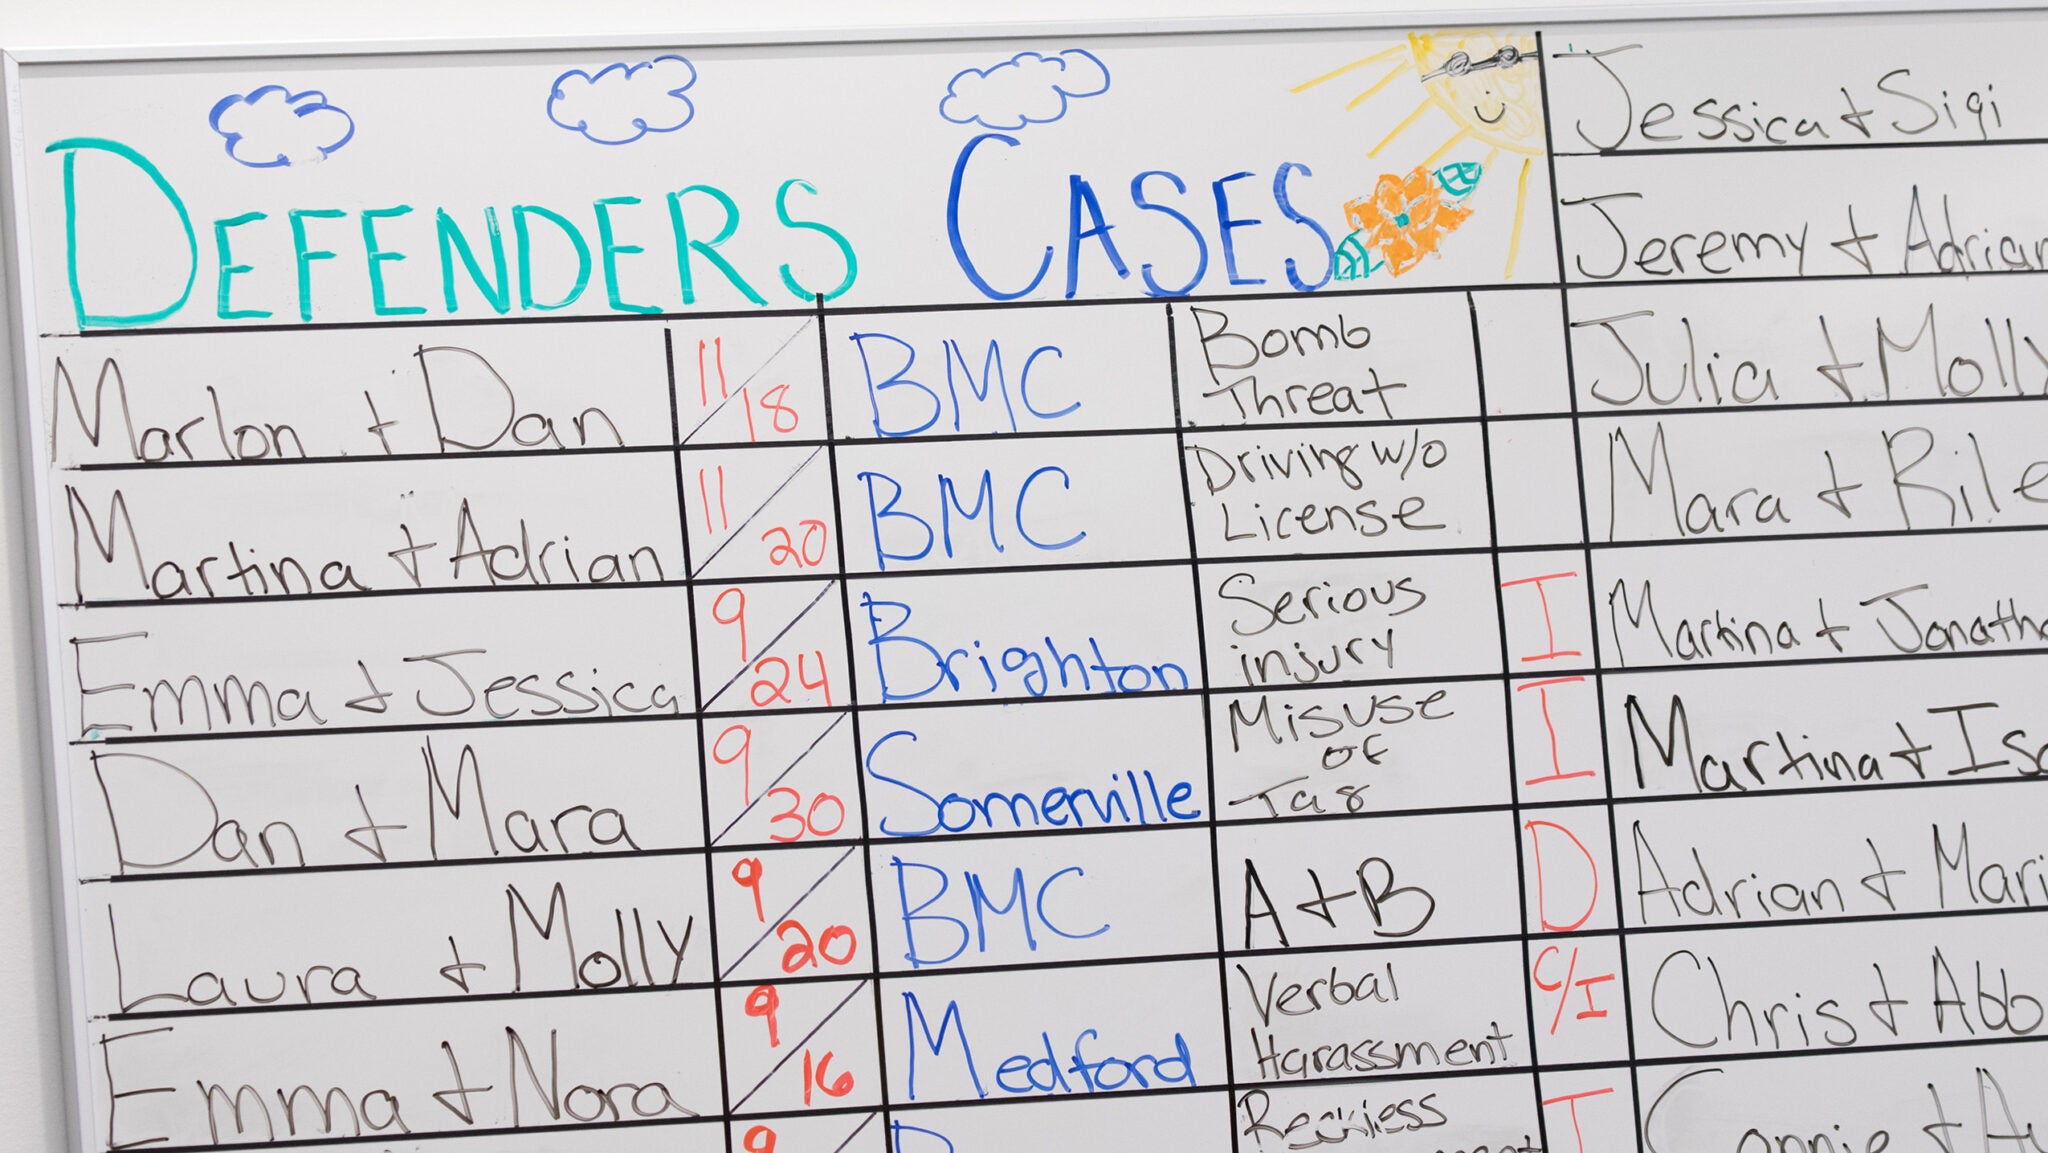 DEFENDERS CASES
Marlon + Dan 11/18 BMC Bomb Threat
Martina + Adrian 11/20 BMC Driving w/o License
Emma + Jessica 9/24 Brighton Serious injury I
Dan + Mara 9/30 Somerville Misuse of Tag I
Laura + Molly 9/20 BMC A+B D
Emma + Nora 9/16 Medford Verbal Harassment C/I
9 Reckless I
Jessica + Sigi
Jeremy + Adrian
Julia + Molly
Mara +
Martina +
Martina +
Adrian +
Chris +
Connie +